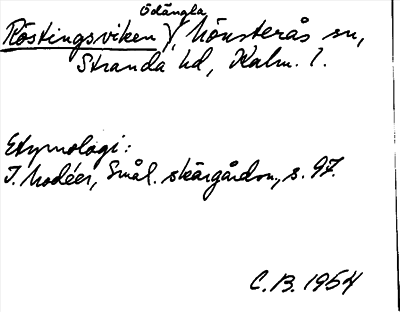 Ödängla
Röstingsviken, Mönsterås sn,
Stranda hd, Kalm. l.
Etymologi:
I. Modéer, Smål. skärgårdsn., s. 97.
C.B. 1954